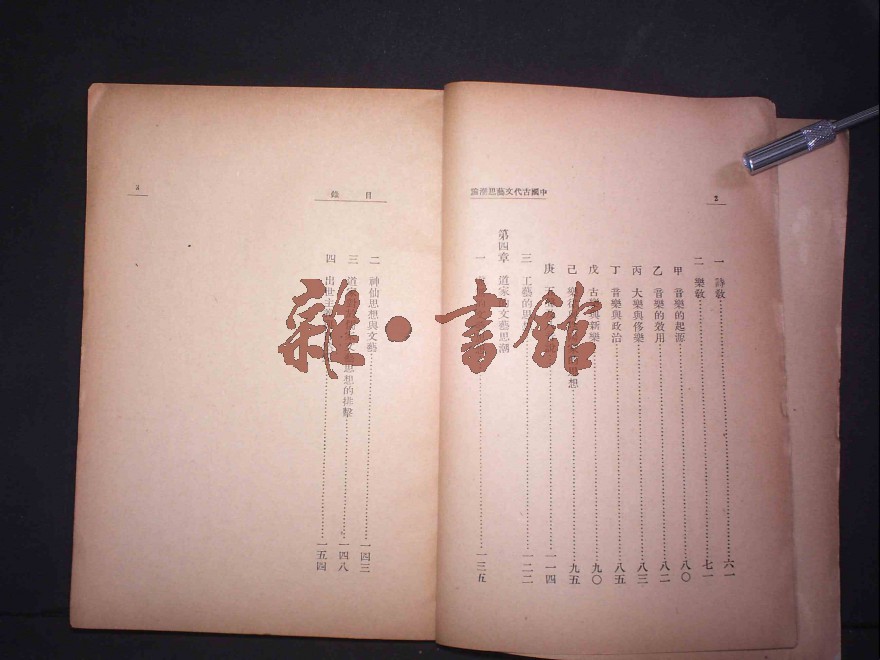 中國古代文藝思潮論
2
一 詩敎 六一
二 樂敎 七一
甲 音樂的起源 八〇
乙 音樂的效用 八二
丙 大樂與侈樂 八三
丁 音樂與政治 八五
戊 古樂與新樂 九〇
己 樂 思想 九五
庚 一一四
三 工藝的思 一二二
第四章 道家的文藝思潮
一 一三五
目錄
3
二 神仙思想與文藝 一四三
三 道 思想的排擊 一四八
四 出世主 一五四
雜·書館